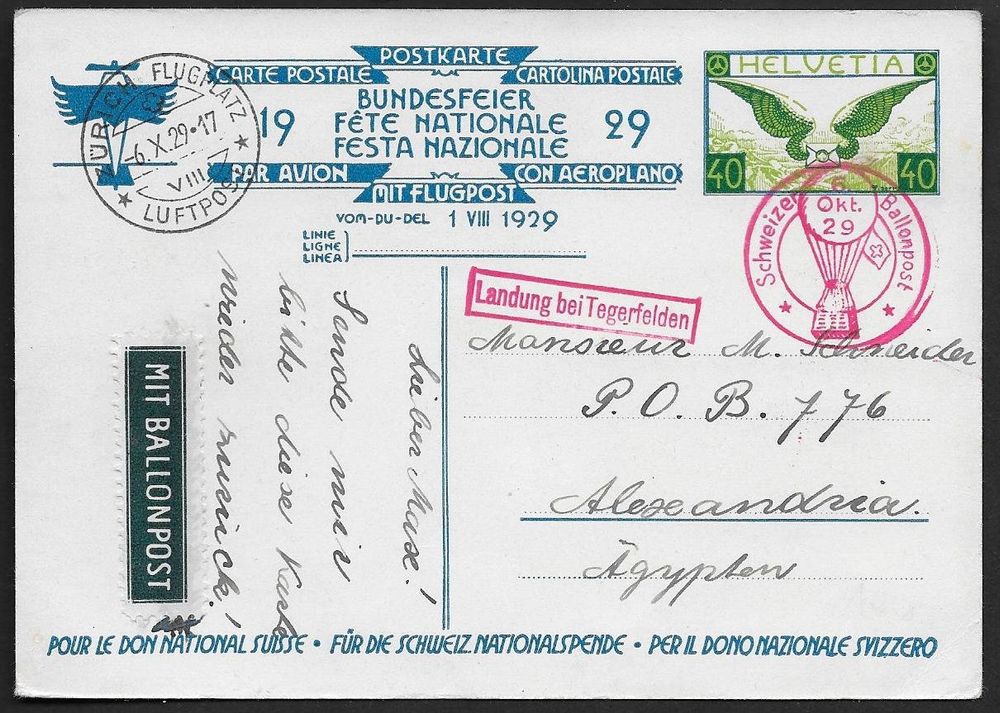 POSTKARTE
CARTE POSTALE CARTOLINA POSTALE
19 BUNDESFEIER 29
FÊTE NATIONALE
FESTA NAZIONALE
PAR AVION CON AEROPLANO
MIT FLUGPOST
VOM-DU-DEL 1 VIII 1929
LINIE
LIGNE
LINEA
HELVETIA
40 40
ZÜRICH FLUGPLATZ
-6.X.29-17
VIII
LUFTPOST
Schweizer Ballonpost
Okt.
29
Landung bei Tegerfelden
Monsieur M. Schneider
P. O. B. 776
Alexandria.
Ägypten
Lieber Max!
Sende mir
bitte diese Karte
wieder zurück!
MIT BALLONPOST
POUR LE DON NATIONAL SUISSE • FÜR DIE SCHWEIZ. NATIONALSPENDE • PER IL DONO NAZIONALE SVIZZERO